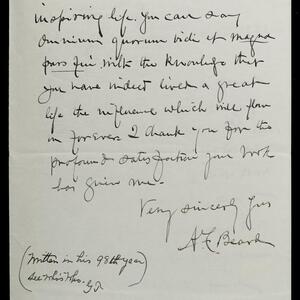 inspiring life. You can say
Omnium quorum vidi et magna
pars fui with the knowledge that
you have indeed lived a great
life the influence which will flow
on forever. I thank you for the
profound satisfaction your work
has given me.
Very sincerely yours
A F Beard
(Written in his 98th year)
see Who's Who.